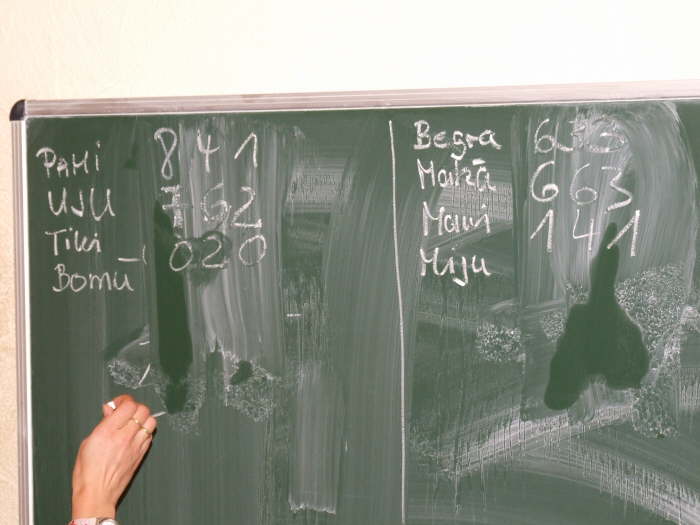 Pami 8 4 1
Uju 7 6 2
Tiki 0 2 0
Bomu
Begra 6
Maká 6 6 3
Mawi 1 4 1
Miju